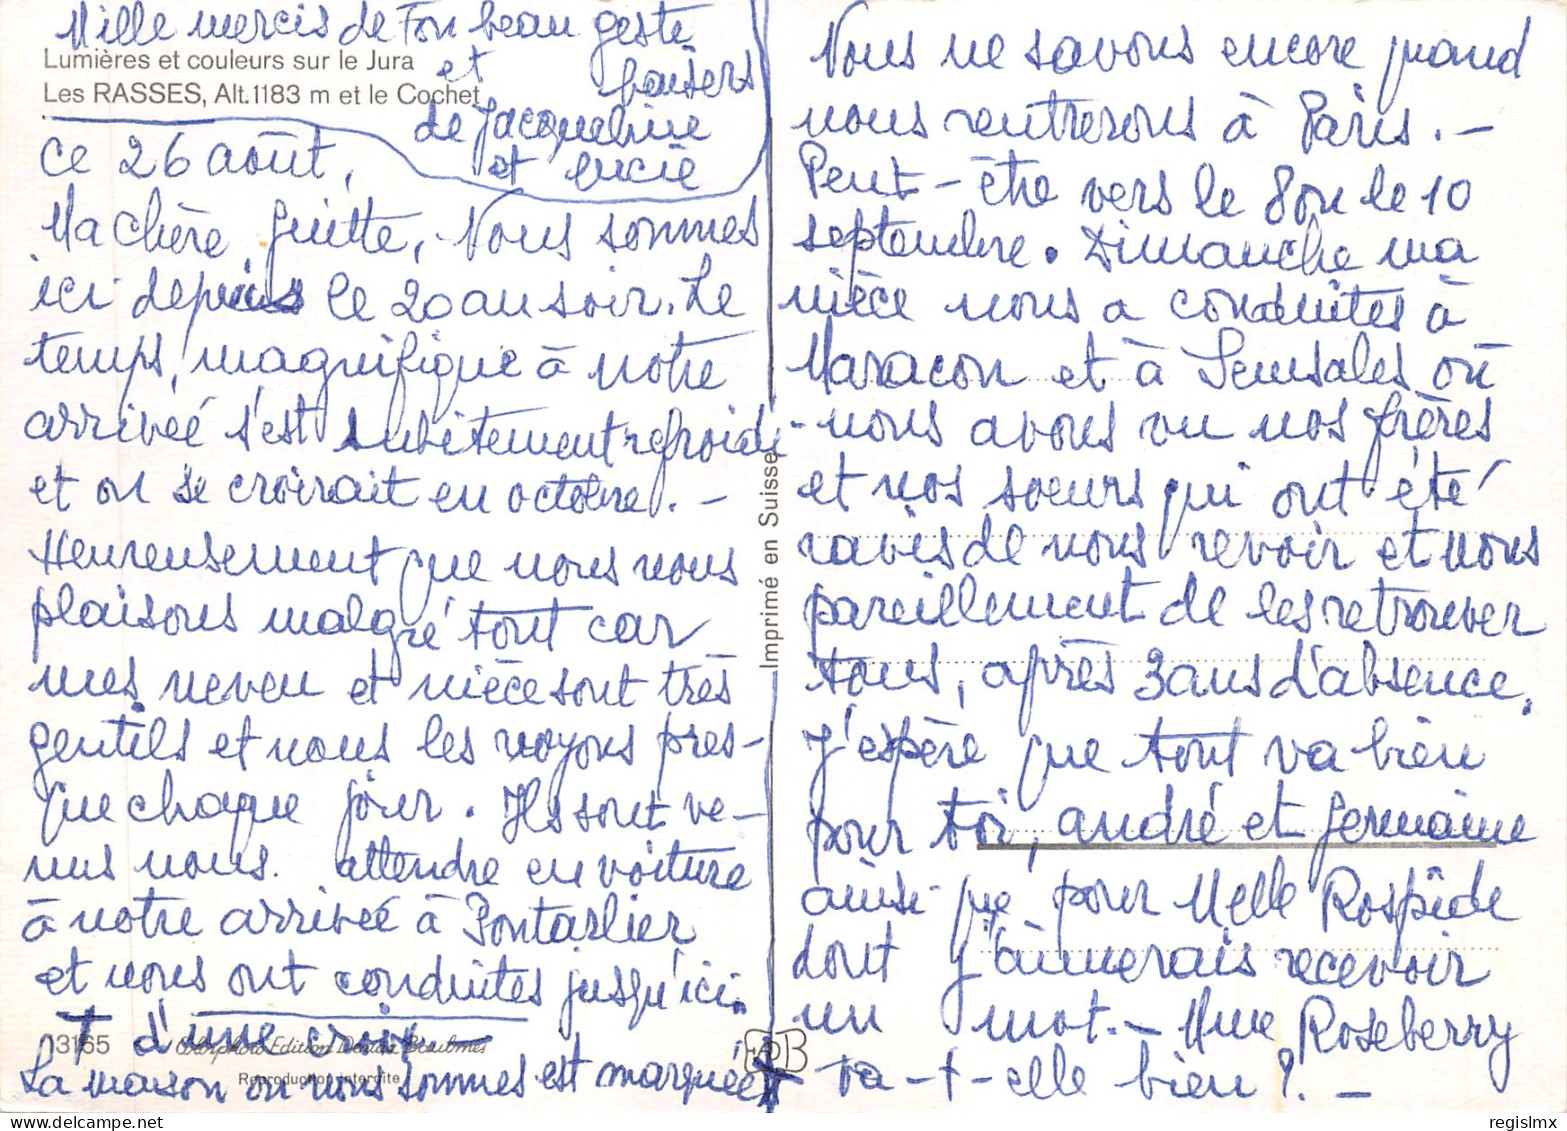 Mille mercis de ton beau geste
et baisers
de Jacqueline
et Lucie
Lumières et couleurs sur le Jura
Les RASSES, Alt.1183 m et le Cochet
ce 26 août,
Ma chère Guitte, Nous sommes
ici depuis le 20 au soir. Le
temps, magnifique à notre
arrivée s'est subitement refroidi
et on se croirait en octobre. -
Heureusement que nous nous
plaisons malgré tout car
mes neveu et nièce sont très
gentils et nous les voyons pres-
que chaque jour. Ils sont ve-
nus nous attendre en voiture
à notre arrivée à Pontarlier
et nous ont conduites jusqu'ici.
+ d'une croix
13165 Colorphoto Edition Baulmes
Reproduction interdite
La maison où nous sommes est marquée +
Imprimé en Suisse
Nous ne savons encore quand
nous rentrerons à Paris. -
Peut-être vers le 8 ou le 10
septembre. Dimanche ma
nièce nous a conduites à
Maracon et à Semsales où
nous avons vu nos frères
et nos soeurs qui ont été
ravis de nous revoir et nous
pareillement de les retrouver
tous, après 3 ans d'absence.
J'espère que tout va bien
pour toi, andré et Germaine
ainsi que pour Melle Rospide
dont j'aimerais recevoir
un mot. - Mme Roseberry
va-t-elle bien ? -
regislmx